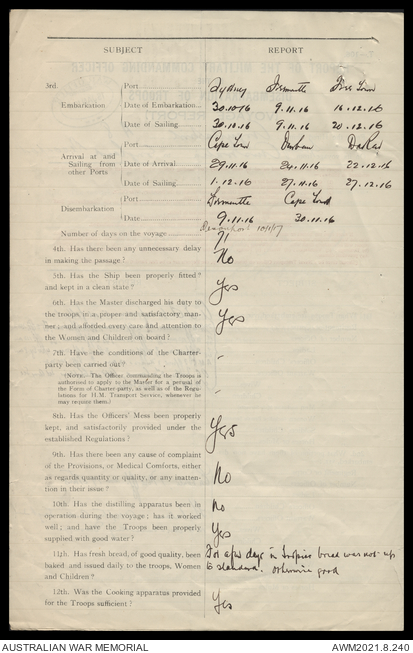 SUBJECT REPORT
3rd. Port Sydney Fremantle Free Town
Embarkation Date of Embarkation 30.10.16 9.11.16 16.12.16
Date of Sailing 30.10.16 9.11.16 20.12.16
Port Cape Town Durban Dakar
Arrival at and Sailing from other Ports Date of Arrival 29.11.16 24.11.16 22.12.16
Date of Sailing 1.12.16 27.11.16 27.12.16
Port Fremantle Cape Town
Disembarkation
Date 9.11.16 30.11.16
Devonport 10/1/17
Number of days on the voyage 71
4th. Has there been any unnecessary delay
in making the passage? No
5th. Has the Ship been properly fitted?
and kept in a clean state? Yes
6th. Has the Master discharged his duty to
the troops, in a proper and satisfactory man-
ner, and afforded every care and attention to
the Women and Children on board? Yes
7th. Have the conditions of the Charter-
party been carried out? -
(NOTE.—The Officer commanding the Troops is
authorized to apply to the Master for a perusal of
the Form of Charter party, as well as of the Regu-
lations for H.M. Transport Service, whenever he
may require them.) -
8th. Has the Officers' Mess been properly
kept, and satisfactorily provided under the
established Regulations? Yes
9th. Has there been any cause of complaint
of the Provisions, or Medical Comforts, either
as regards quantity or quality, or any inatten-
tion in their issue? No
10th. Has the distilling apparatus been in
operation during the voyage; has it worked No
well; and have the Troops been properly
supplied with good water? Yes
11th. Has fresh bread, of good quality, been
baked and issued daily to the troops, Women
and Children? For a few days in Tropics bread was not up
to standard. Otherwise good
12th. Was the Cooking apparatus provided
for the Troops sufficient? Yes
AUSTRALIAN WAR MEMORIAL AWM2021.8.240